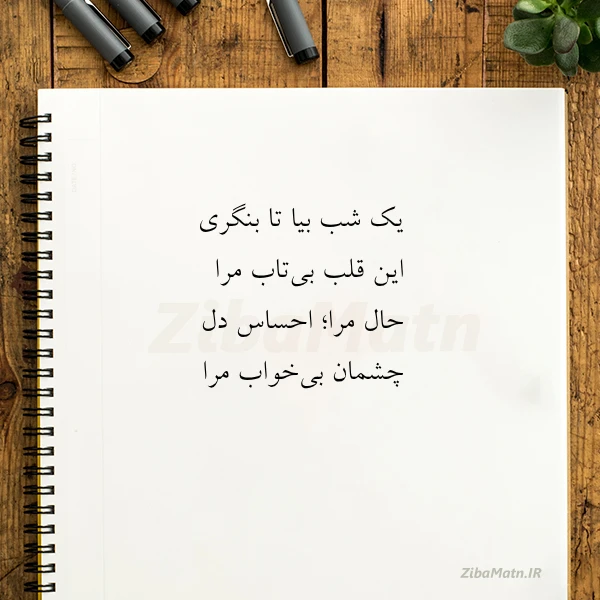 یک شب بیا تا بنگری
این قلب بی‌تاب مرا
حال مرا؛ احساس دل
چشمان بی‌خواب مرا
ZibaMatn
ZibaMatn.IR